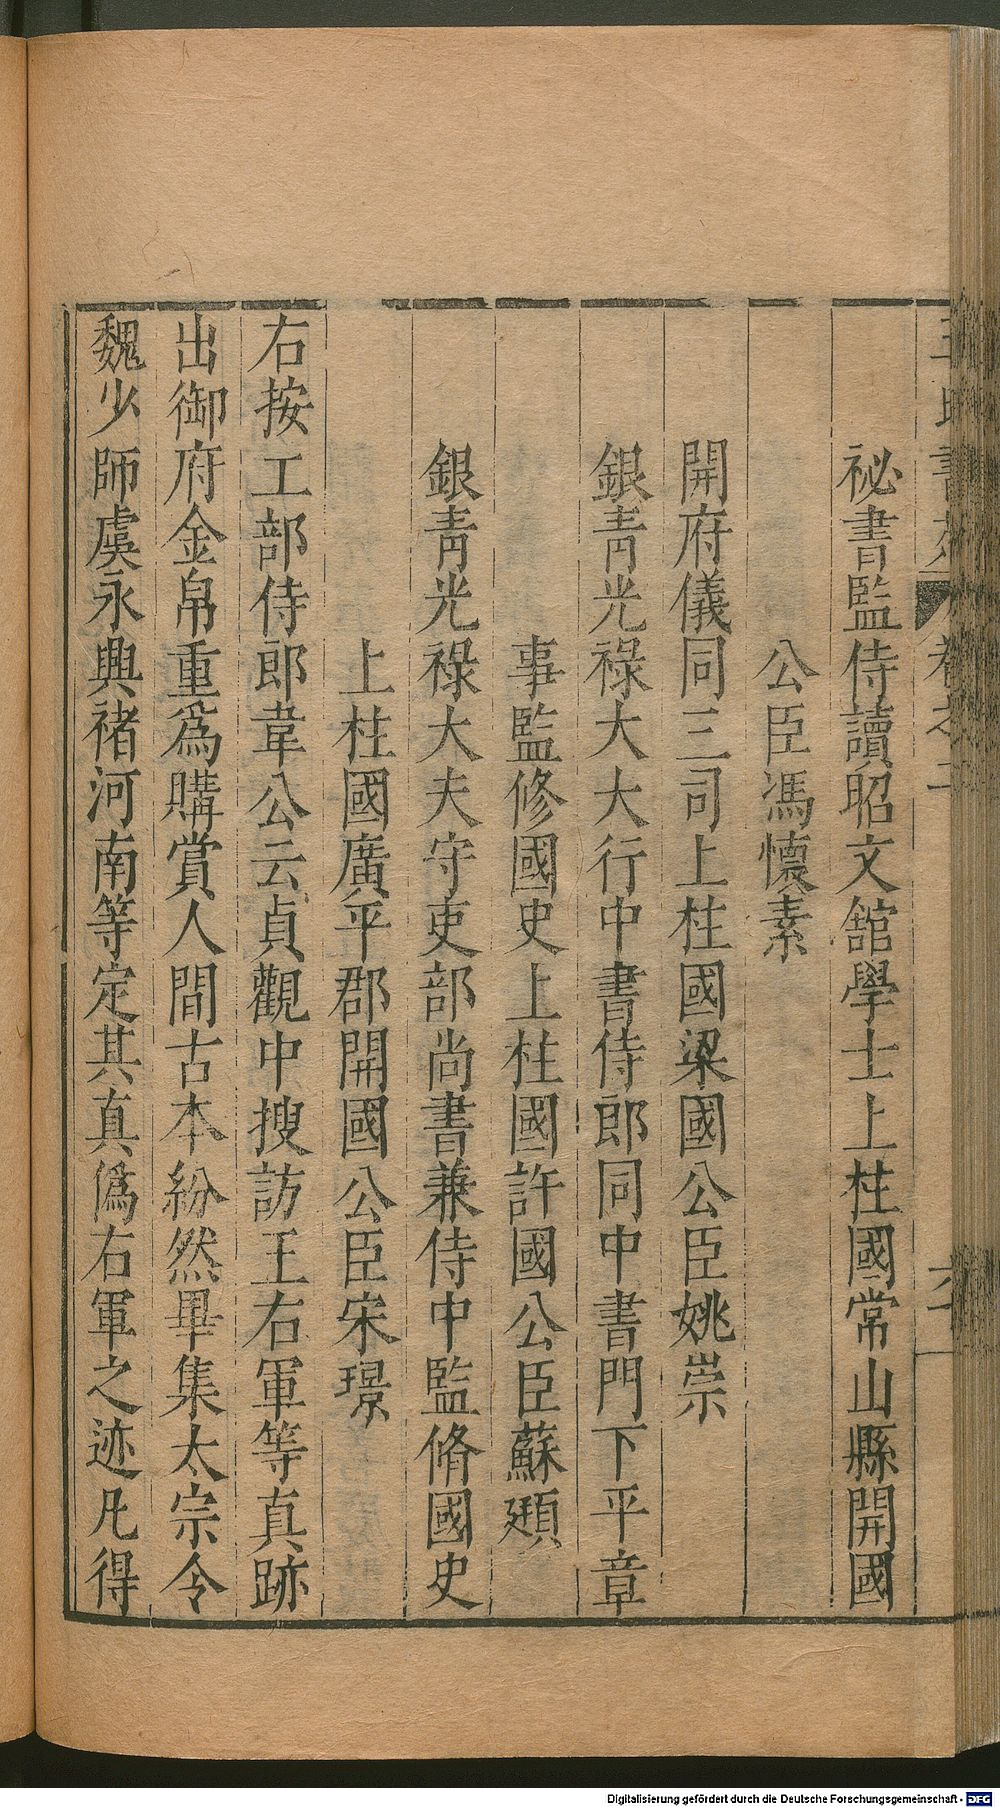 祕書監侍讀昭文舘學士上柱國常山縣開國
公臣馮懷素
開府儀同三司上柱國梁國公臣姚崇
銀青光祿大大行中書侍郎同中書門下平章
事監修國史上柱國許國公臣蘇頲
銀青光祿大夫守吏部尚書兼侍中監脩國史
上柱國廣平郡開國公臣宋璟
右按工部侍郎韋公云貞觀中搜訪王右軍等真跡
出御府金帛重爲購賞人間古本紛然畢集太宗令
魏少師虞永興褚河南等定其真僞右軍之迹凡得
Digitalisierung gefördert durch die Deutsche Forschungsgemeinschaft - DFG